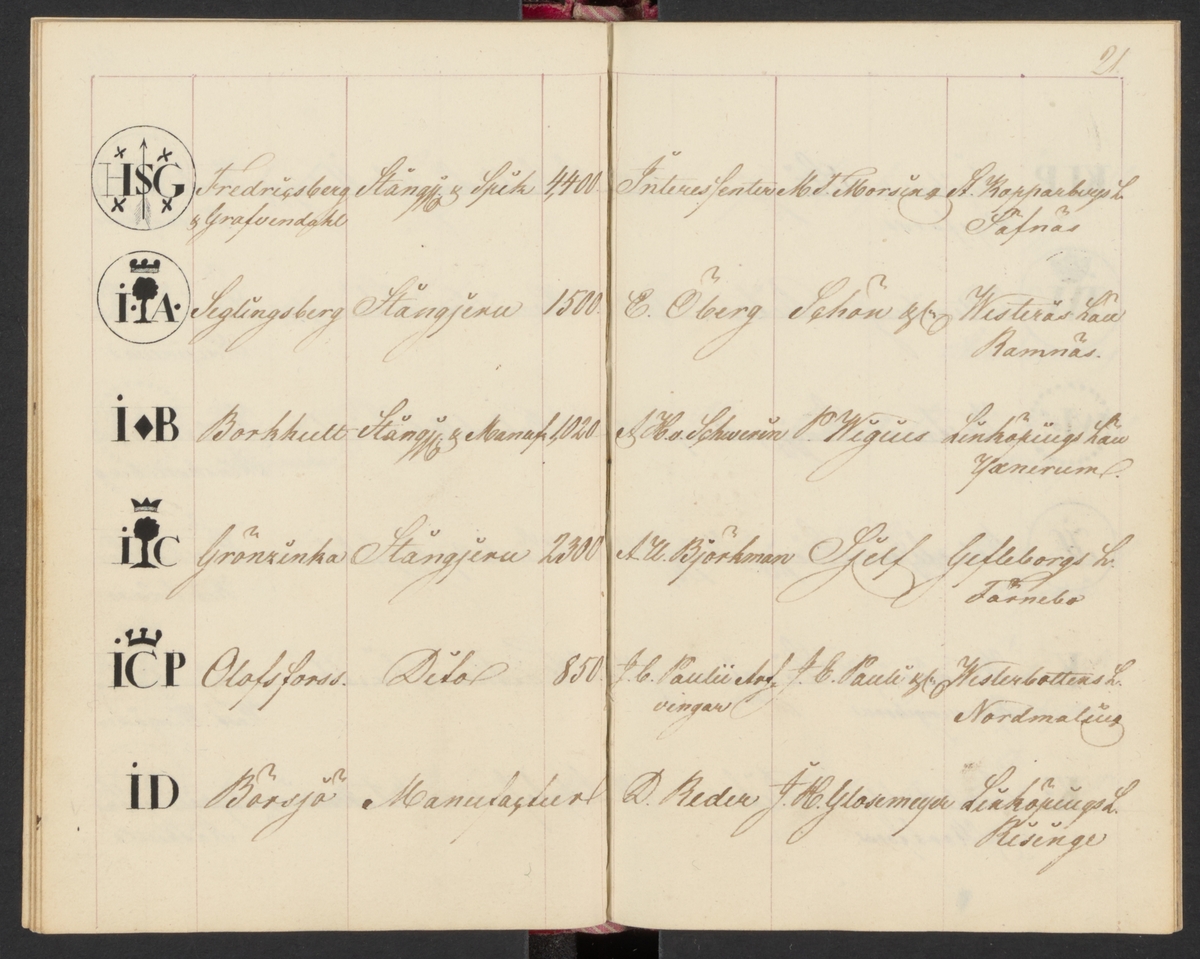 21.
HISG Fredricsberg Stångj. & Spik 4,400 Interessenter M. I. Morsing St. Kopparbergs L.
& Grafvendahl Säfnäs
I·A· Seglingsberg Stångjern 1500. E. Öberg Schön Westerås Län
Ramnäs.
I♦B Borkhult Stångj. & Manuf. 1,020 v. Schwerin P. Wigius Linköpings Län
Yxnerum.
IC Grönsinka Stångjern 2300 Björkman Sjelf Gefleborgs L.
Färnebo
ICP Olofsforss. Dito 850. J. C. Paulii Arf- J. C. Pauli Westerbottens L.
vingar Nordmaling
ID Börsjö Manufactur D. Reder J. H. Glosemeyer Linköpings L.
Risinge